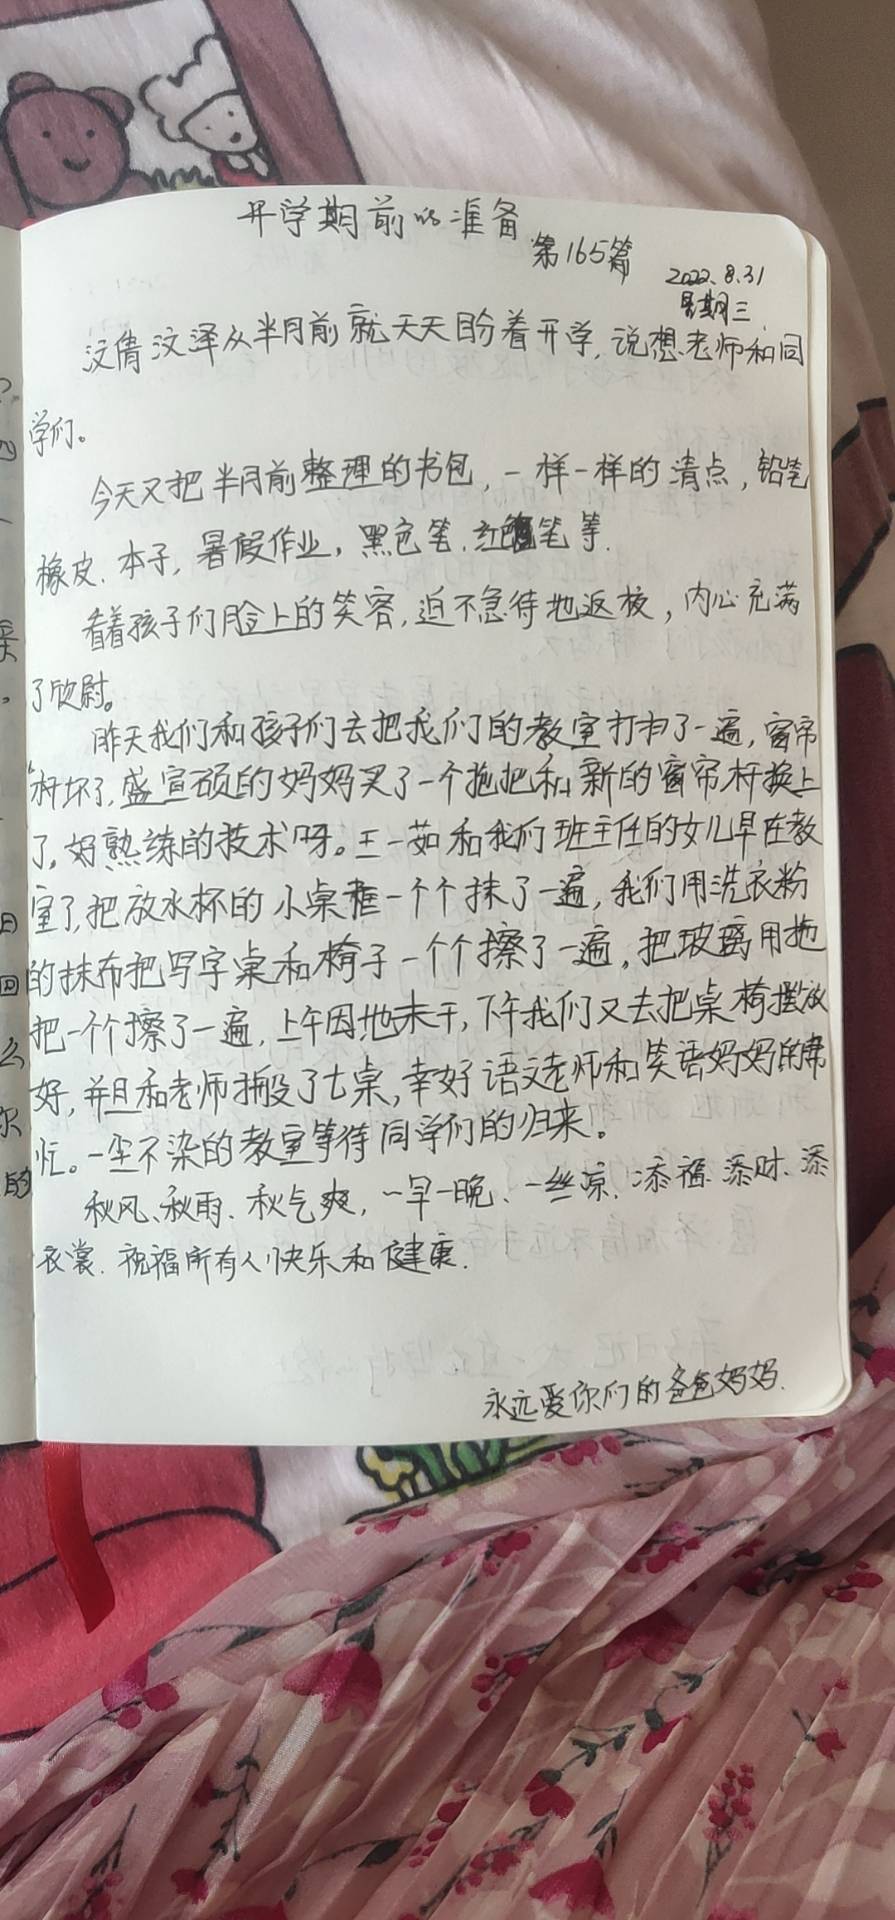 开学期前的准备
第165篇
2022.8.31
星期三
汶倩汶泽从半月前就天天盼着开学,说想老师和同
学们。
今天又把半月前整理的书包,一样一样的清点,铅笔
橡皮、本子,暑假作业,黑色笔、红色笔等.
看着孩子们脸上的笑容,迫不急待地返校,内心充满
了欣慰。
昨天我们和孩子们去把我们的教室打扫了一遍,窗帘
杆坏了,盛宣硕的妈妈买了一个拖把和新的窗帘杆换上
了,好熟练的技术呀。王一茹和我们班主任的女儿早在教
室了,把放水杯的小桌框一个个抹了一遍,我们用洗衣粉
的抹布把写字桌和椅子一个个擦了一遍,把玻璃用拖
把一个个擦了一遍,上午因地未干,下午我们又去把桌椅摆放
好,并且和老师搬了七桌,幸好语文老师和笑语妈妈的帮
忙。一尘不染的教室等待同学们的归来。
秋风、秋雨、秋气爽,一早一晚、一丝凉、添福、添财、添
衣裳、祝福所有人快乐和健康.
永远爱你们的爸爸妈妈.